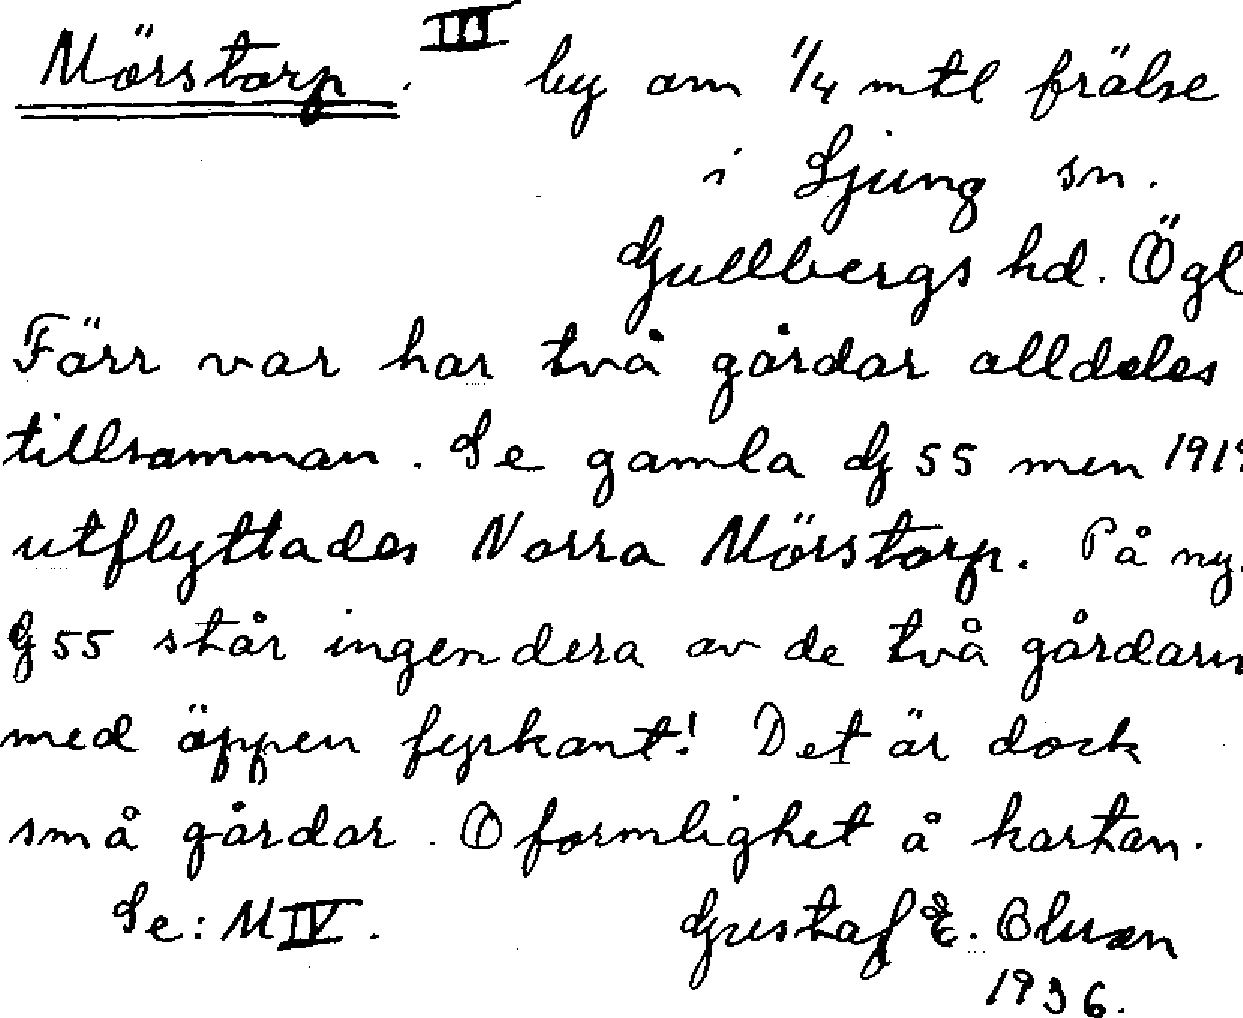 Mörstorp. III by om 1/4 mtl frälse
i Ljung sn.
Gullbergs hd. Ögl
Förr var har två gårdar alldeles
tillsamman. Se gamla G 55 men
utflyttades Norra Mörstorp. På ny.
G 55 står ingendera av de två gårdarn
med öppen fyrkant! Det är dock
små gårdar. Oformlighet å kartan.
Se: M IV. Gustaf E. Olsson
1936.